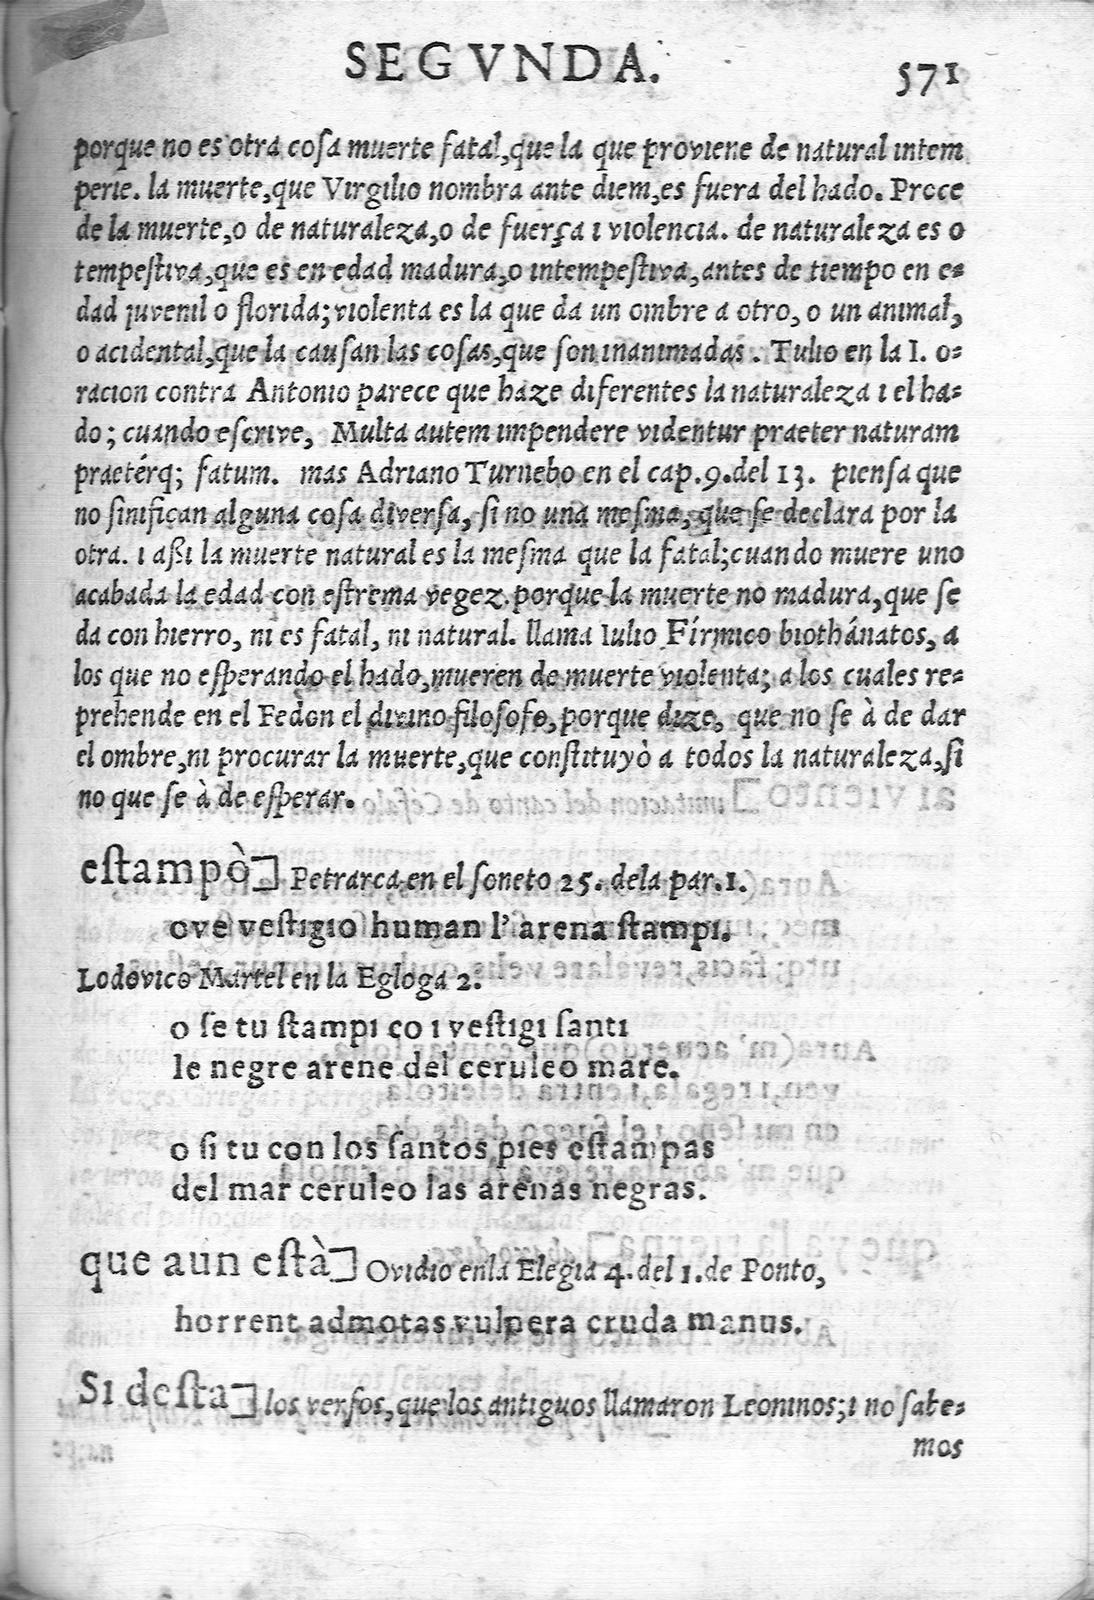 SEGVNDA. 571
porque no es otra cosa muerte fatal,que la que proviene de natural intem
perie. la muerte,que Virgilio nombra ante diem,es fuera del hado. Proce
de la muerte,o de naturaleza,o de fuerça i violencia. de naturaleza es o
tempeſtiva,que es en edad madura,o intempeſtiva,antes de tiempo en e-
dad juvenil o florida; violenta es la que da un ombre a otro, o un animal,
o acidental,que la cauſan las coſas,que ſon inanimadas. Tulio en la I. o-
racion contra Antonio parece que haze diferentes la naturaleza i el ha-
do; cuando eſcrive, Multa autem impendere videntur praeter naturam
praetérq; fatum. mas Adriano Turnebo en el cap.9.del 13. pienſa que
no ſinifican alguna coſa diverſa, ſi no una meſma, que ſe declara por la
otra. i aſsi la muerte natural es la meſma que la fatal;cuando muere uno
acabada la edad con eſtrema vegez. porque la muerte no madura,que ſe
da con hierro, ni es fatal, ni natural. llama Iulio Fírmico biothánatos, a
los que no eſperando el hado,mueren de muerte violenta; a los cuales re-
prehende en el Fedon el divino filoſofo,porque dize, que no ſe à de dar
el ombre,ni procurar la muerte,que conſtituyò a todos la naturaleza,ſi
no que ſe à de eſperar.
eſtampò] Petrarca en el ſoneto 25. dela par.1.
ove veſtigio human l'arena ſtampi.
Lodovico Martel en la Egloga 2.
o ſe tu ſtampi co i veſtigi ſanti
le negre arene del ceruleo mare.
o ſi tu con los ſantos pies eſtampas
del mar ceruleo las arenas negras.
que aun eſtà] Ovidio enla Elegia 4. del 1. de Ponto,
horrent admotas vulnera cruda manus.
Si deſta] los verſos,que los antiguos llamaron Leoninos;i no ſabe-
mos